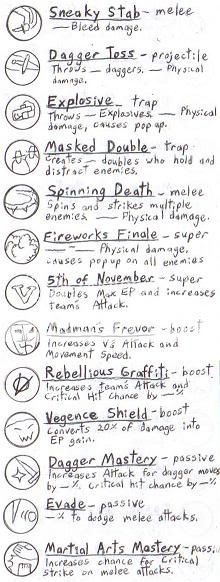 Sneaky Stab - melee
— Bleed damage.
Dagger Toss - projectile
Throws — daggers. — Physical
damage.
Explosive - trap
Throws — Explosives. — Physical
damage, causes pop up.
Masked Double - trap
Creates — doubles who hold and
distract enemies.
Spinning Death - melee
Spins and strikes multiple
enemies — Physical damage.
Fireworks Finale - super
— — — Physical damage.
causes popup on all enemies
5th of November - super
Doubles Max EP and increases
team's Attack.
Madman's Frevor - boost
increases V's Attack and
Movement Speed.
Rebellious Graffiti - boost
Increases team's Attack and
Critical Hit chance by —%
Vegence Shield - boost
Converts 20% of damage into
EP gain.
Dagger Mastery - passive
Increases Attack for dagger moves
by —%. Critical hit chance by —%.
Evade - passive
—% to dodge melee attacks.
Martial Arts Mastery - passi
Increases chance for Critical
strike on melee attacks.